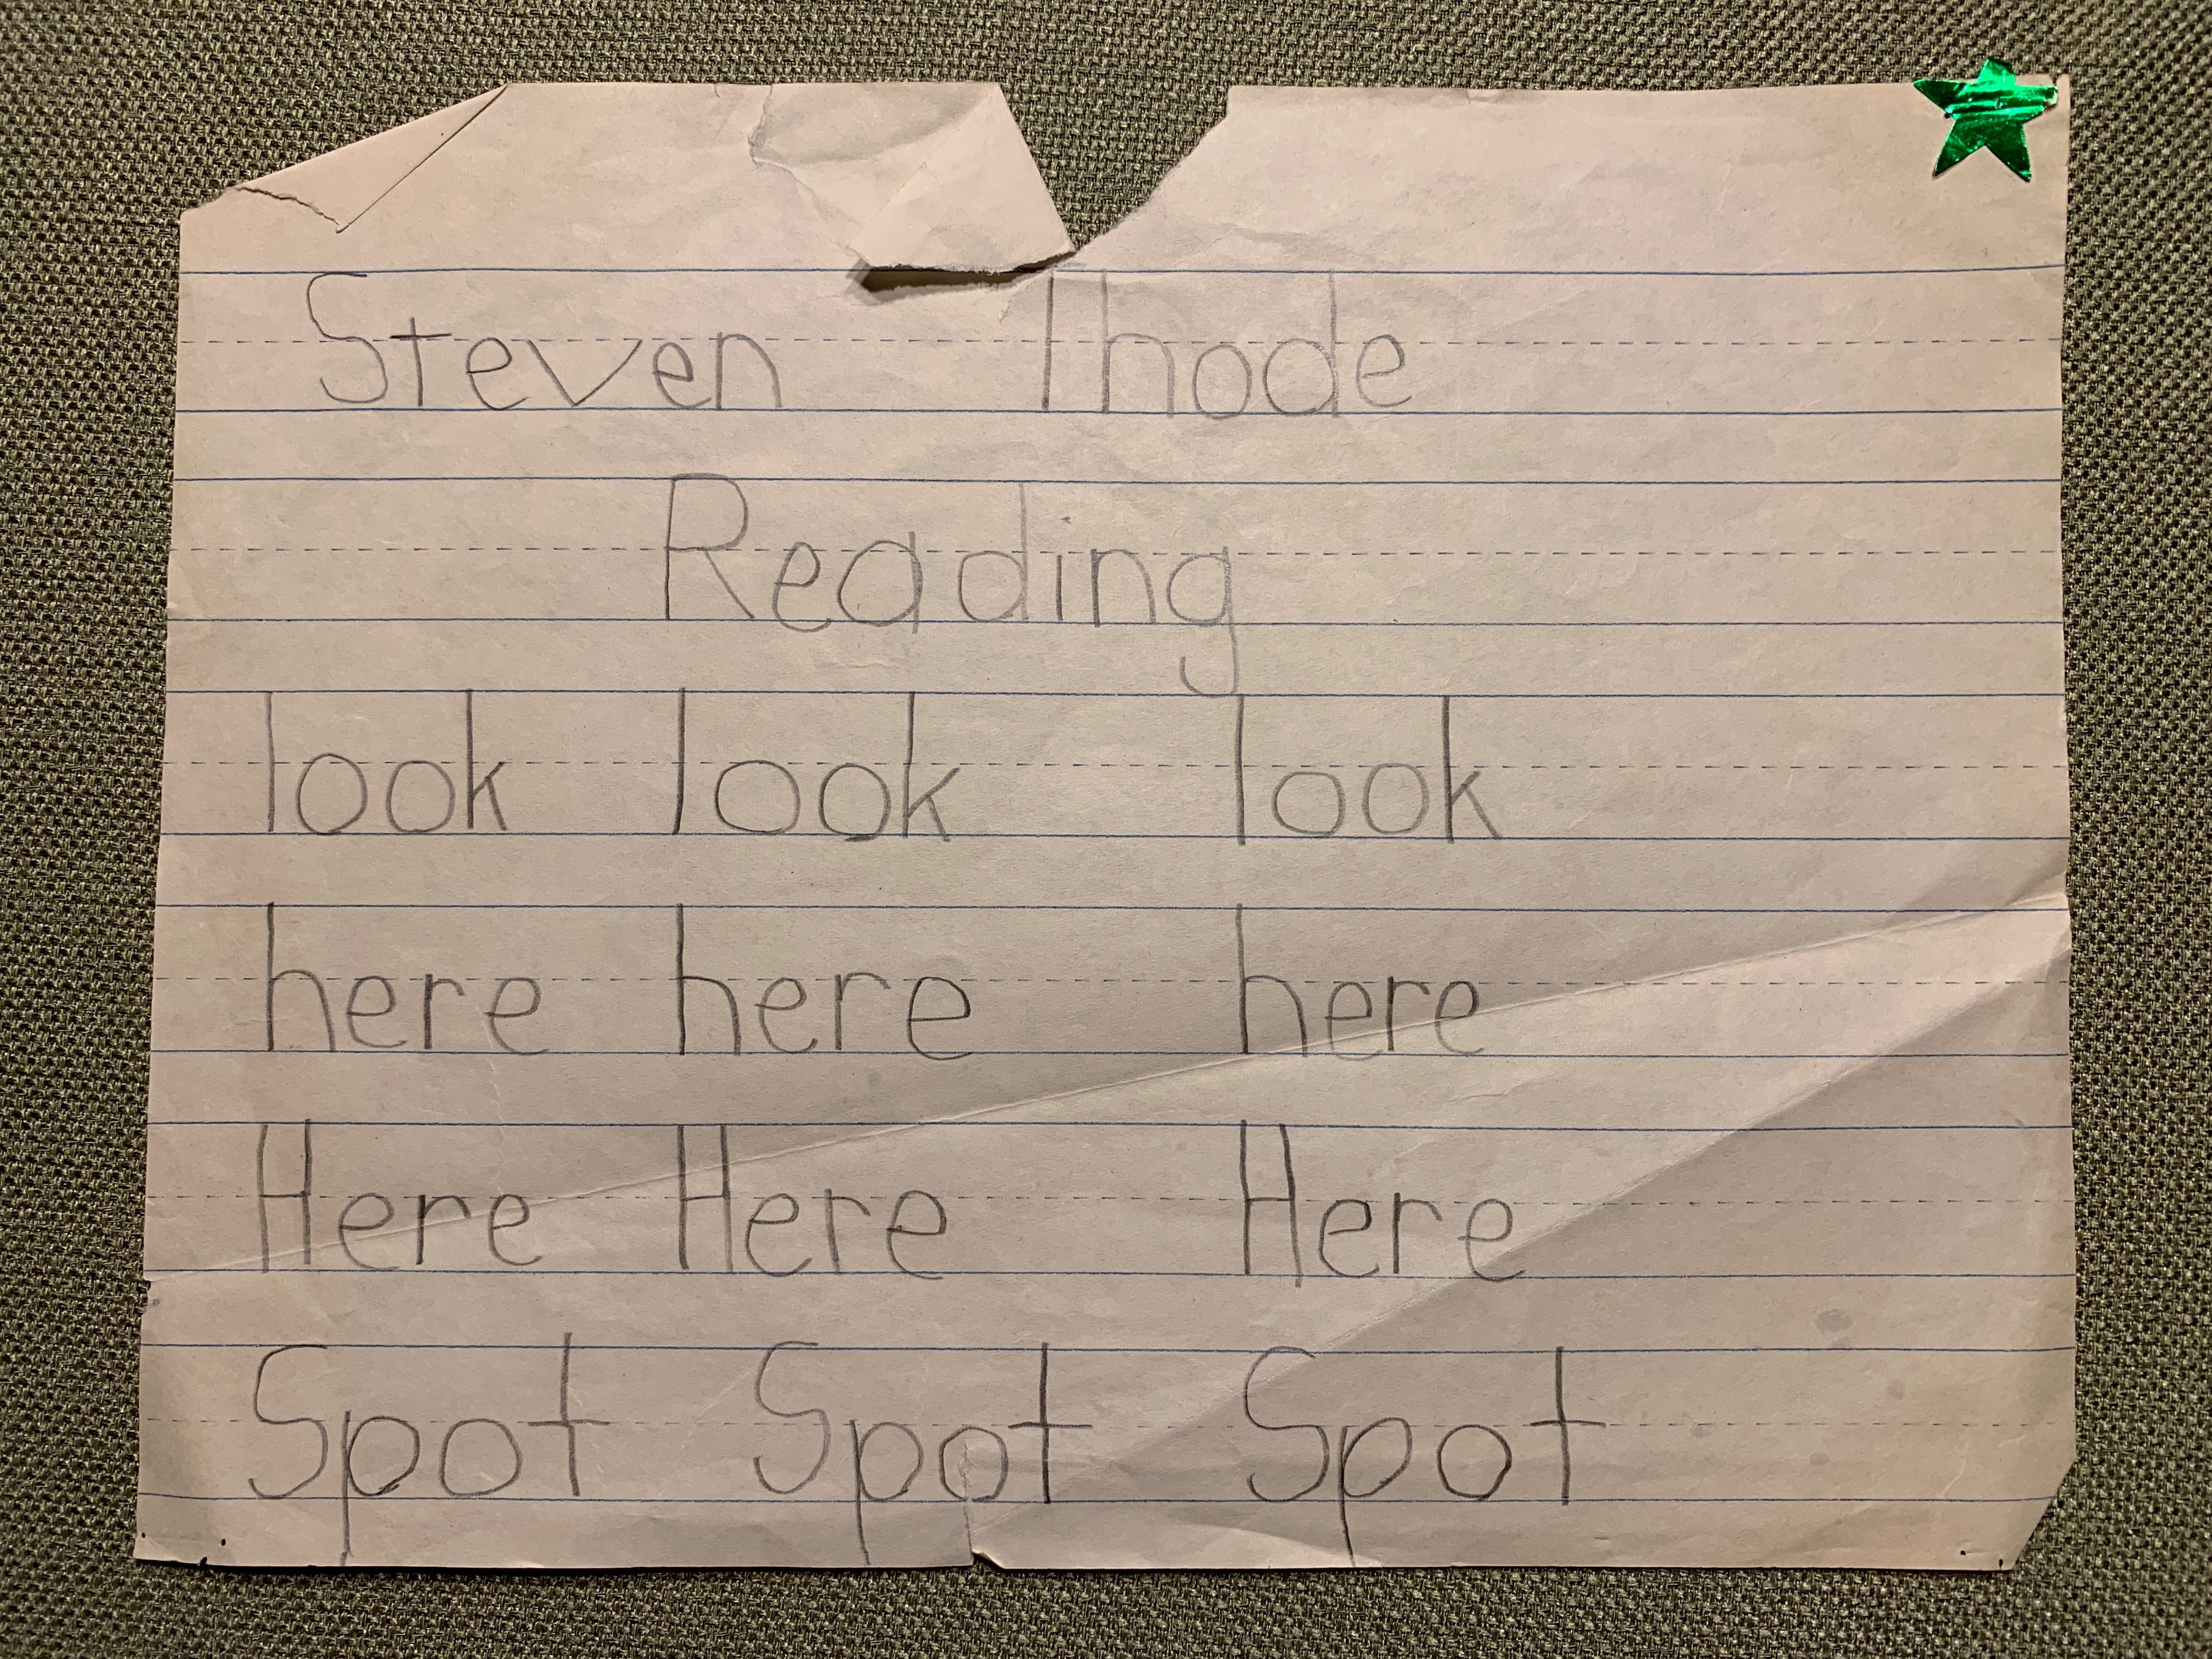 Steven Thode
Reading
look look look
here here here
Here Here Here
Spot Spot Spot